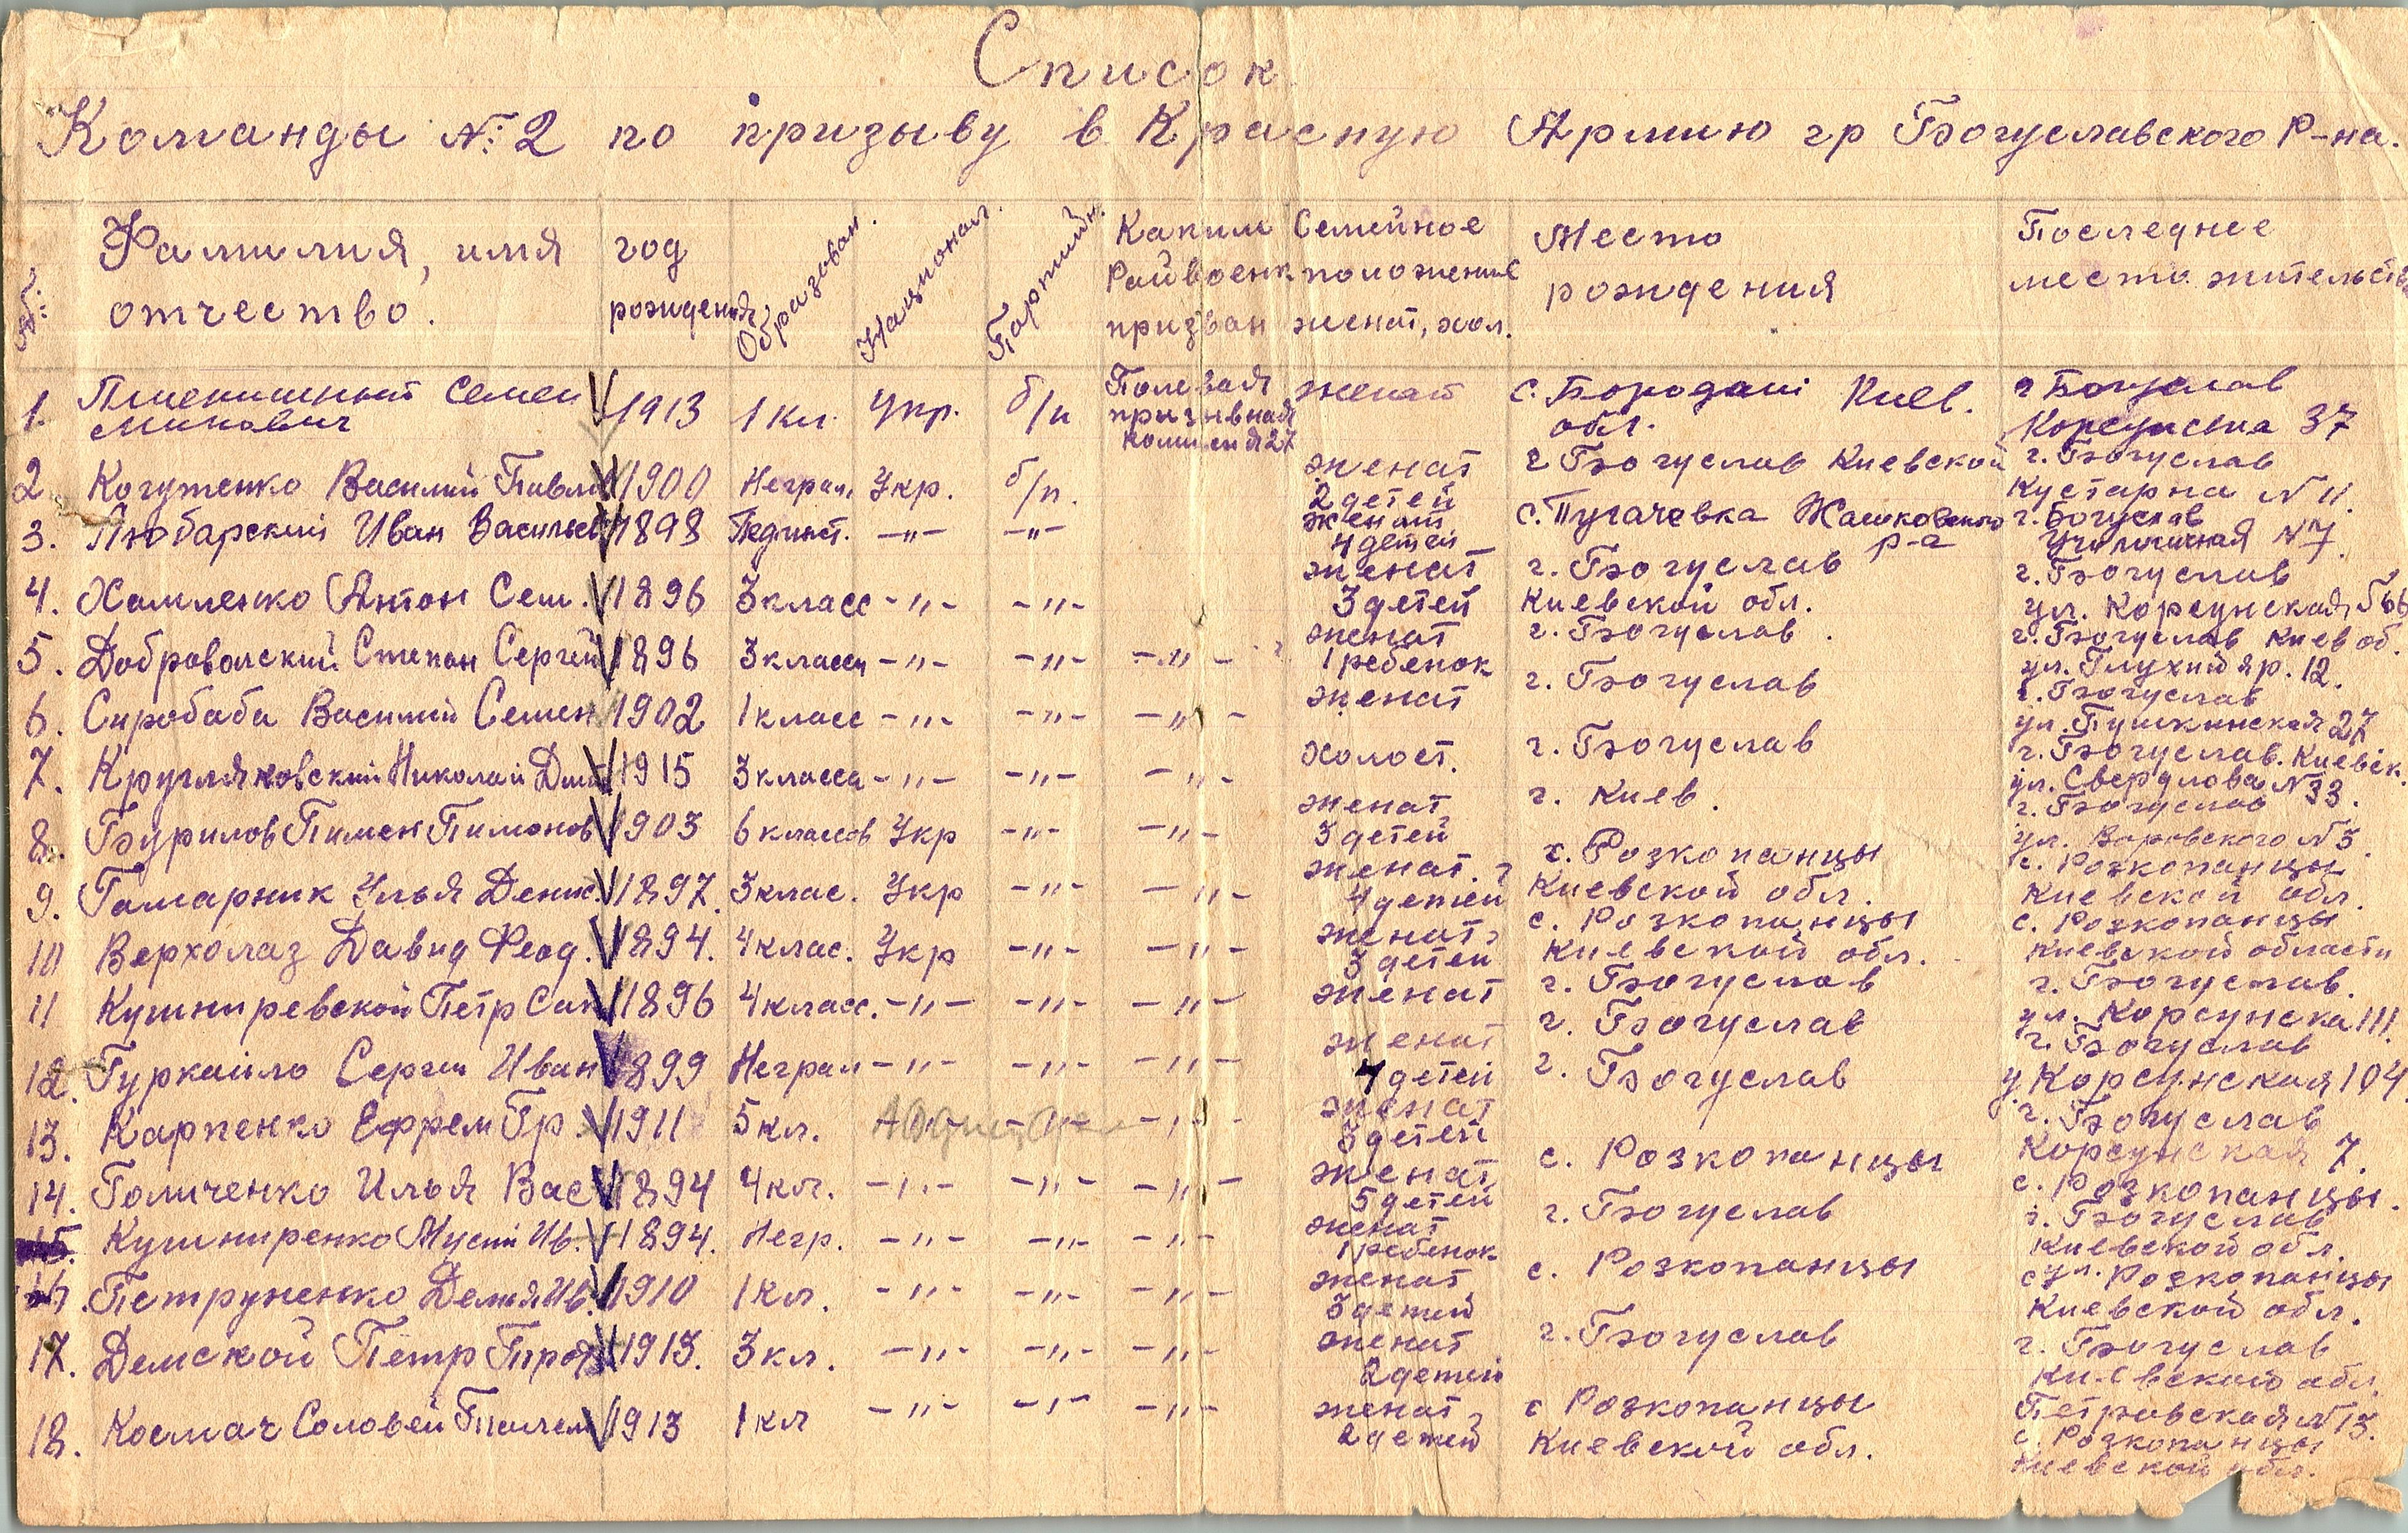 Список
Команды №: 2 по призыву в Красную Армию гр Богуславского Р-на.
№: Фамилия, имя отчество. год рождения Образован. Национал. Партийн. Каким Райвоенк призван Семейное положение женат, хол. Место рождения Последнее место жительств
1. Пшеничный Семен Минович 1913 1 кл. Укр. б/п Полевая призывная комиссия 27 женат с. Бородані Киев. обл. г Богуслав Корсунська 37
2 Когутенко Василий Павло 1900 Неграм. Укр. б/п. женат 2 детей г Богуслав Киевской г. Богуслав Кустарна N 11.
3. Любарский Иван Васильев 1898 Пединст. -"- -"- женат 4 детей с. Пугачевка Жашковского р-а г. Богуслав Училищная N 7.
4. Хомленко Антон Сем. 1896 3 класс -"- -"- женат 3 детей г. Богуслав Киевской обл. г. Богуслав ул. Корсунская, 66
5. Добровольский Степан Сергей 1896 3 класса -"- -"- -"- женат 1 ребенок г. Богуслав. г. Богуслав Киев об. ул. Глухий яр. 12.
6. Сиробаба Василий Семен 1902 1 класс -"- -"- -"- женат г. Богуслав г. Богуслав ул. Пушкинская 27
7. Кругляковский Николай Дми 1915 3 класса -"- -"- -"- холост. г. Богуслав г. Богуслав. Киевск. ул. Свердлова N 33.
8. Бурилов Пимен Пимонов 1903 6 классов Укр -"- -"- женат 3 детей г. Киев. г. Богуслав ул. Воровского N 3.
9. Гамарник Улья Денис. 1897. 3 клас. Укр -"- -"- женат. 4 детей с. Розкопанцы Киевской обл. с. Розкопанцы Киевской обл.
10 Верхолаз Давид Феод. 1894. 4 клас. Укр -"- -"- женат 3 детей с. Розкопанцы Киевской обл. с. Розкопанцы Киевской области
11 Кушниревской Петр Сав 1896 4 класс. -"- -"- -"- женат г. Богуслав г. Богуслав. ул. Корсунска 111.
12. Гуркайло Сергей Иван 1899 Неграм -"- -"- -"- женат 4 детей г. Богуслав г. Богуслав у. Корсунская 104.
13. Карпенко Ефрем Гр. 1911 5 кл. -"- -"- женат 3 детей г. Богуслав г. Богуслав Корсунская 7.
14. Голиченко Илья Вас 1894 4 кл. -"- -"- -"- женат 5 детей с. Розкопанцы с. Розкопанцы.
15. Кушниренко Мусий Ив. 1894. Негр. -"- -"- -"- женат 1 ребенок г. Богуслав г. Богуслав Киевской обл.
16. Петруненко Демья Ив. 1910 1 кл. -"- -"- -"- женат 3 детей с. Розкопанцы с. Розкопанцы Киевской обл.
17. Демской Петр Прот 1913. 3 кл. -"- -"- -"- женат 2 детей г. Богуслав г. Богуслав Киевской обл. Петровская N 13.
18. Космач Соловей 1913 1 кл -"- -"- -"- женат 2 детей с Розкопанцы Киевской обл. с. Розкопанцы Киевской обл.